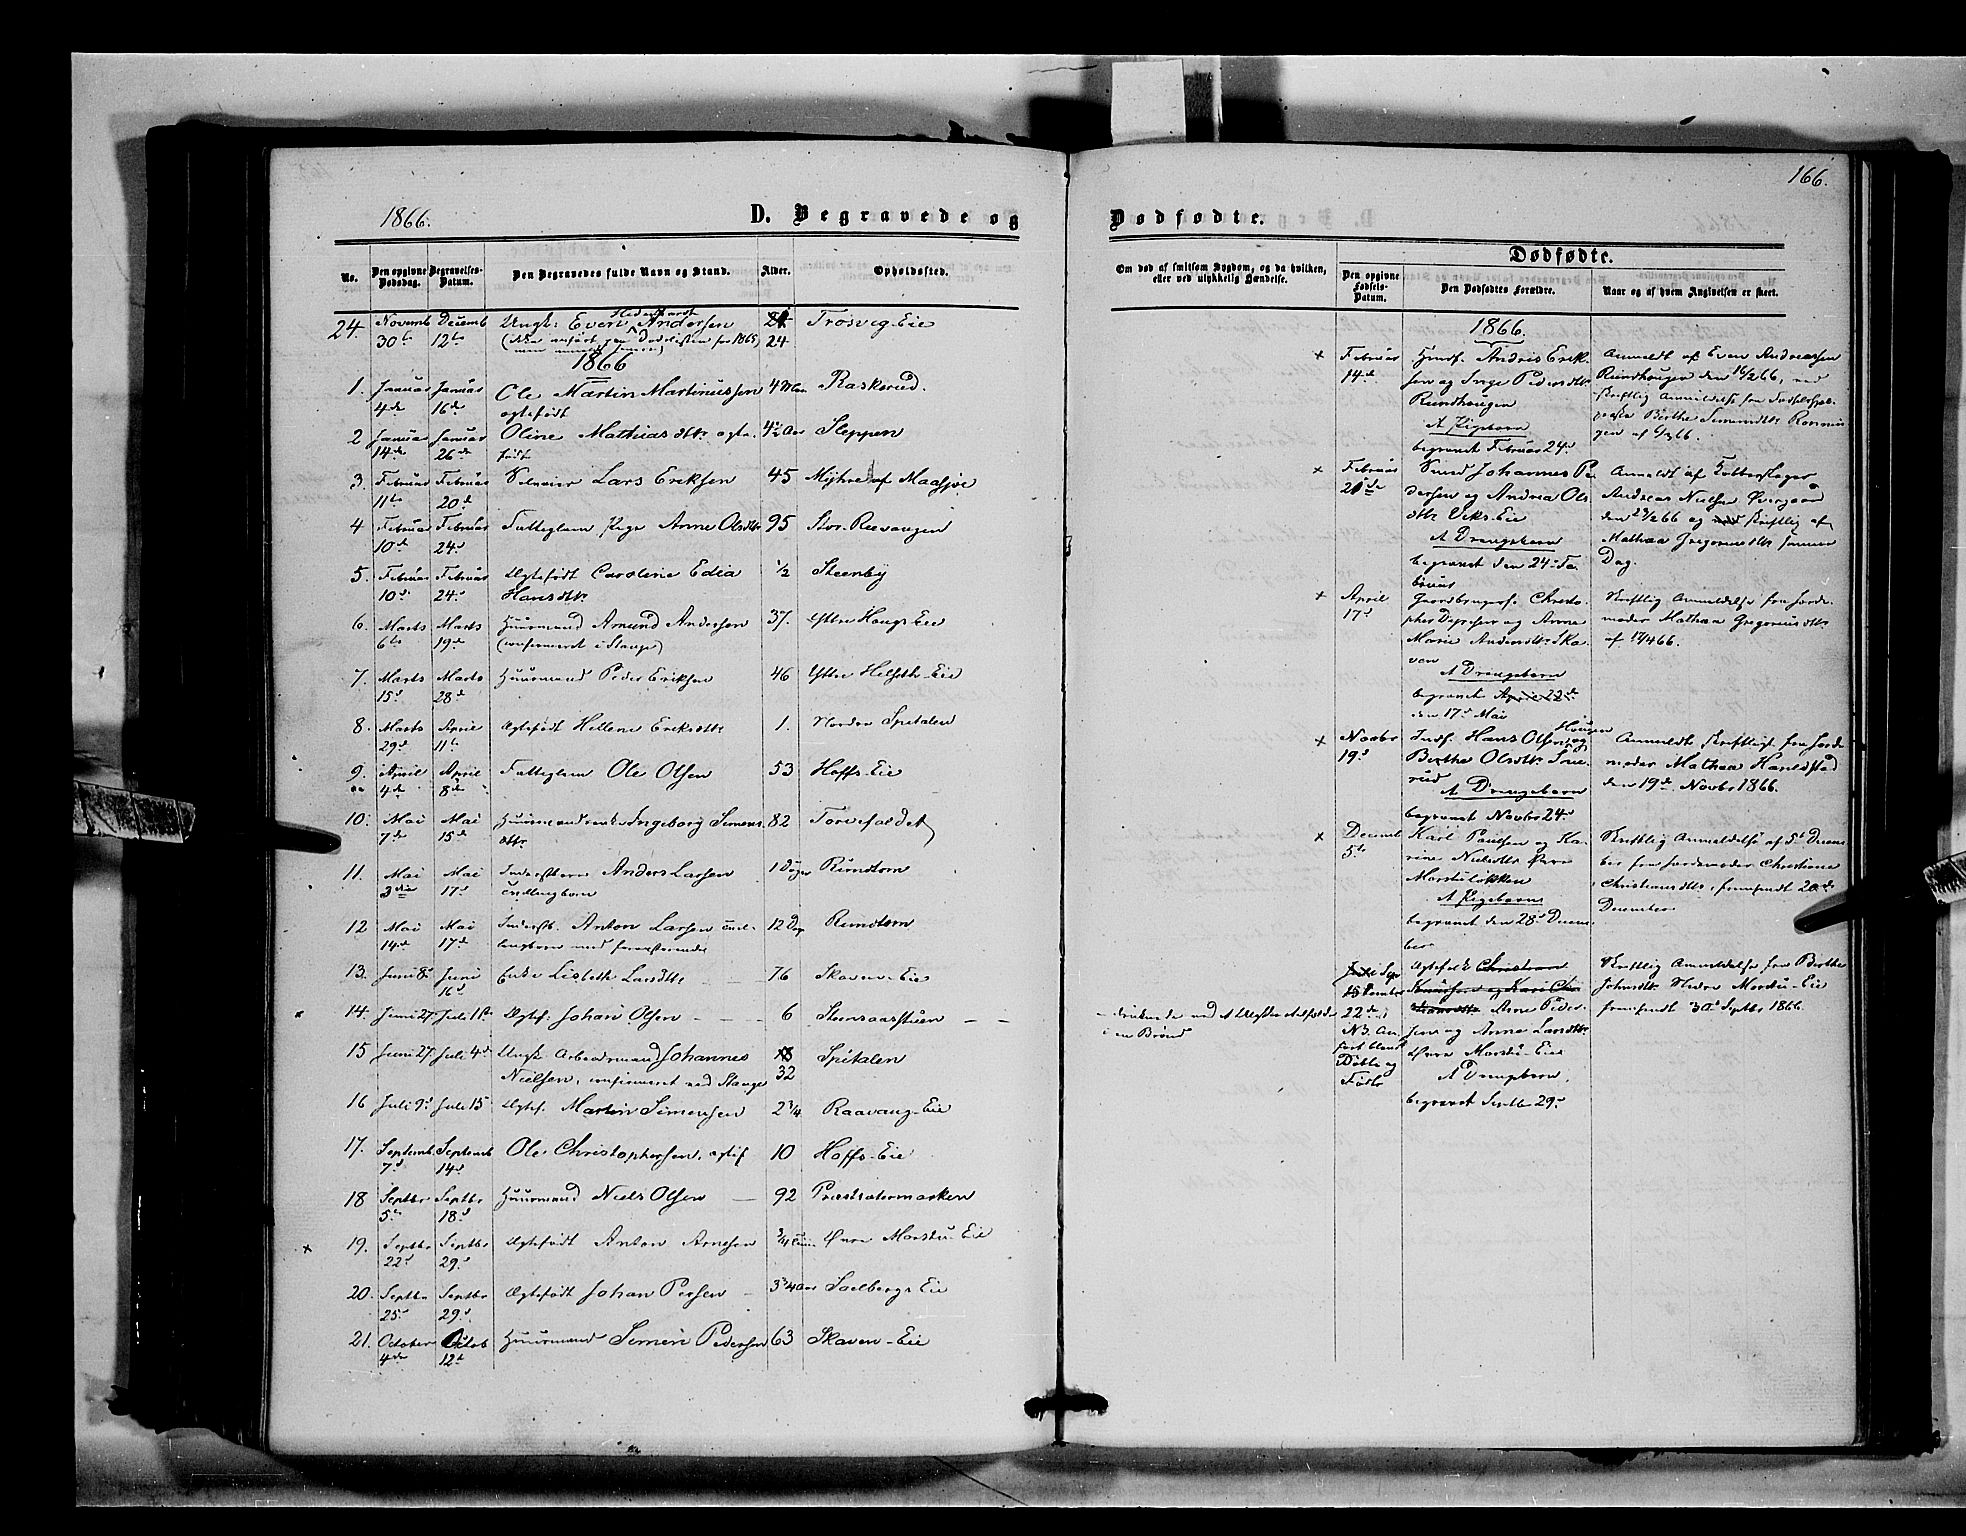 166.
1866.
D. Begravede og
Dødfødte.
No.
Den opgivne Dødsdag.
Begravelses-Datum.
Den Begravedes fulde Navn og Stand.
Alder.
Opholdssted.
24.
Novemb 30te
Decemb 12te
Ungk: Even Andersen
24
Trosvig-Eie
1866
1.
Januar 4de
Januar 16de
Ole Martin Martinussen
ægtefødt
Raskerud.
2
Januar 14de
Januar 26de
Oline Mathiasdtr. ægte-
født
4½ Aar
Sleppen
3.
Februar 11te
Februar 20de
Lars Eriksen
45
Myhre af Maasjøe
4
Februar 10de
Februar 24de
Fattiglem Pige Anne Olsdtr
95
5.
Februar 10de
Februar 24de
Ægtefødt Caroline Edia
Hansdtr.
½
Steenby
6.
Marts 6te
Marts 19de
Huusmand Amund Andersen
(confirmeret i Stange)
37.
Yttre Haugs-Eie
7.
Marts 15de
Marts 28de
Huusmand Peder Eriksen
46
Yttre Helseth-Eie
8.
Marts 29de
April 11te
Ægtefødt Hellene Eriksdtr
1.
Nordre Spitalen
9.
April 4de
April 8de
Fattiglem Ole Olsen
53
Hoffs-Eie
10.
Mai 7de
Mai 15de
Huusmandsenke Ingeborg Simens
dtr.
82
Torvefaldet
11.
Mai 3die
Mai 17de
Anders Larsen
tvillingbarn
1 Døgn
Rundtom
12
Mai 14de
Mai 17de
Anton Larsen tvil-
lingbarn med foranstaaende
12 Dag
Rundtom
13.
Juni 8de
Juni 16de
Enke Lisbeth Larsdtr
76
Skaven-Eie
14.
Juni 27.
Juli 1ste
Ægtef. Johan Olsen
6
Steensaasstuen
15
Juni 27.
Juli 4de
Ungk. Arbeidsmand Johannes
Nielsen, confirmeret ved Stange
32
Spitalen
16
Juli 9de
Juli 15
Ægtef. Martin Simensen
2¾
Raavang-Eie
17.
Septemb 7de
Septemb 14de
Ole Christophersen, ægtef
10
Hoffs-Eie
18
Septbr 5te
Septbr 18de
Huusmand Niels Olsen
92
Præstsætermarken
19.
Septbr 22de
Septbr 29de
Ægtefødt Anton Arnesen
Øvre Morstu-Eie
20.
Septbr 25de
Septbr 29de
Ægtefødt Johan Persen
3¾ Aar
Saelbergs Eie
21.
October 4de
Octob 12te
Huusmand Simen Pedersen
63
Skaven-Eie
Om død af smitsom Sygdom, og da hvilken,
eller ved ulykkelig Hændelse.
druknede ved et Ulykkestilfælde
i en Brønd
Dødfødte.
Den opgivne Fødsels-Datum.
Den Dødfødtes Forældre.
Naar og af hvem Angivelsen er skeet.
1866.
Februar 14de
Huusf. Andreas Erik-
sen og Inge Pedersdtr.
Rundhaugen
Et Pigebarn
begravet Februar 24de
Anmeldt af Even Andreassen
Rundhaugen den 16/2 66, ved
skriftlig Anmeldelse fra
Berthe Simensdtr.
Februar 21de
Johannes Pe-
dersen og Andrea Ols-
dtr Veks-Eie
Et Drengebarn
begravet den 24de Fe-
bruar
Anmeldt af
Andreas Nielsen Øvergaard
den 23/2 66 og skriftlig af
Mathea Gregoriusdtr samme
Dag.
April 17de
Gaardbrugerf. Christo-
pher Dyresen og Anne
Marie Andersdtr. Ska-
ven
Et Drengebarn
begravet April 22de
den 17de Mai
Skriftlig Anmeldelse fra Jorde-
moder Mathea Gregoriusdtr.
af 17/4 66.
Novbr 19de
Indf. Hans Olsen Haugen og
Berthe Olsdtr.
Et Drengebarn
begravet Novbr 24de
Anmeldt skriftligt fra Jorde-
moder Mathea Haraldstad
den 19de Novbr 1866.
Decemb 5te
Karl Paulsen og Ka-
rine Nielsdtr Øvre
Morstuløkken
Et Pigebarn
begravet den 28de Decem-
ber
Skriftlig Anmeldelse af 5te Decem-
ber fra Jordemoder Christiane
Christiansdtr, fremsendt 20de
December
September
22de
NB. An-
ført blandt
Døbte og
Fødte
Ægtefolk Christian
Knudsen og Kari Chri-
stiansdtr Arne Peder-
sen og Anne Larsdtr.
Øvre Morstu-Eie
Et Drengebarn,
begravet Septb 29de
Skriftlig Anmeldelse fra Berthe
Johnsdtr. Nedre Morstu-Eie
fremsendt 30te Septbr 1866.